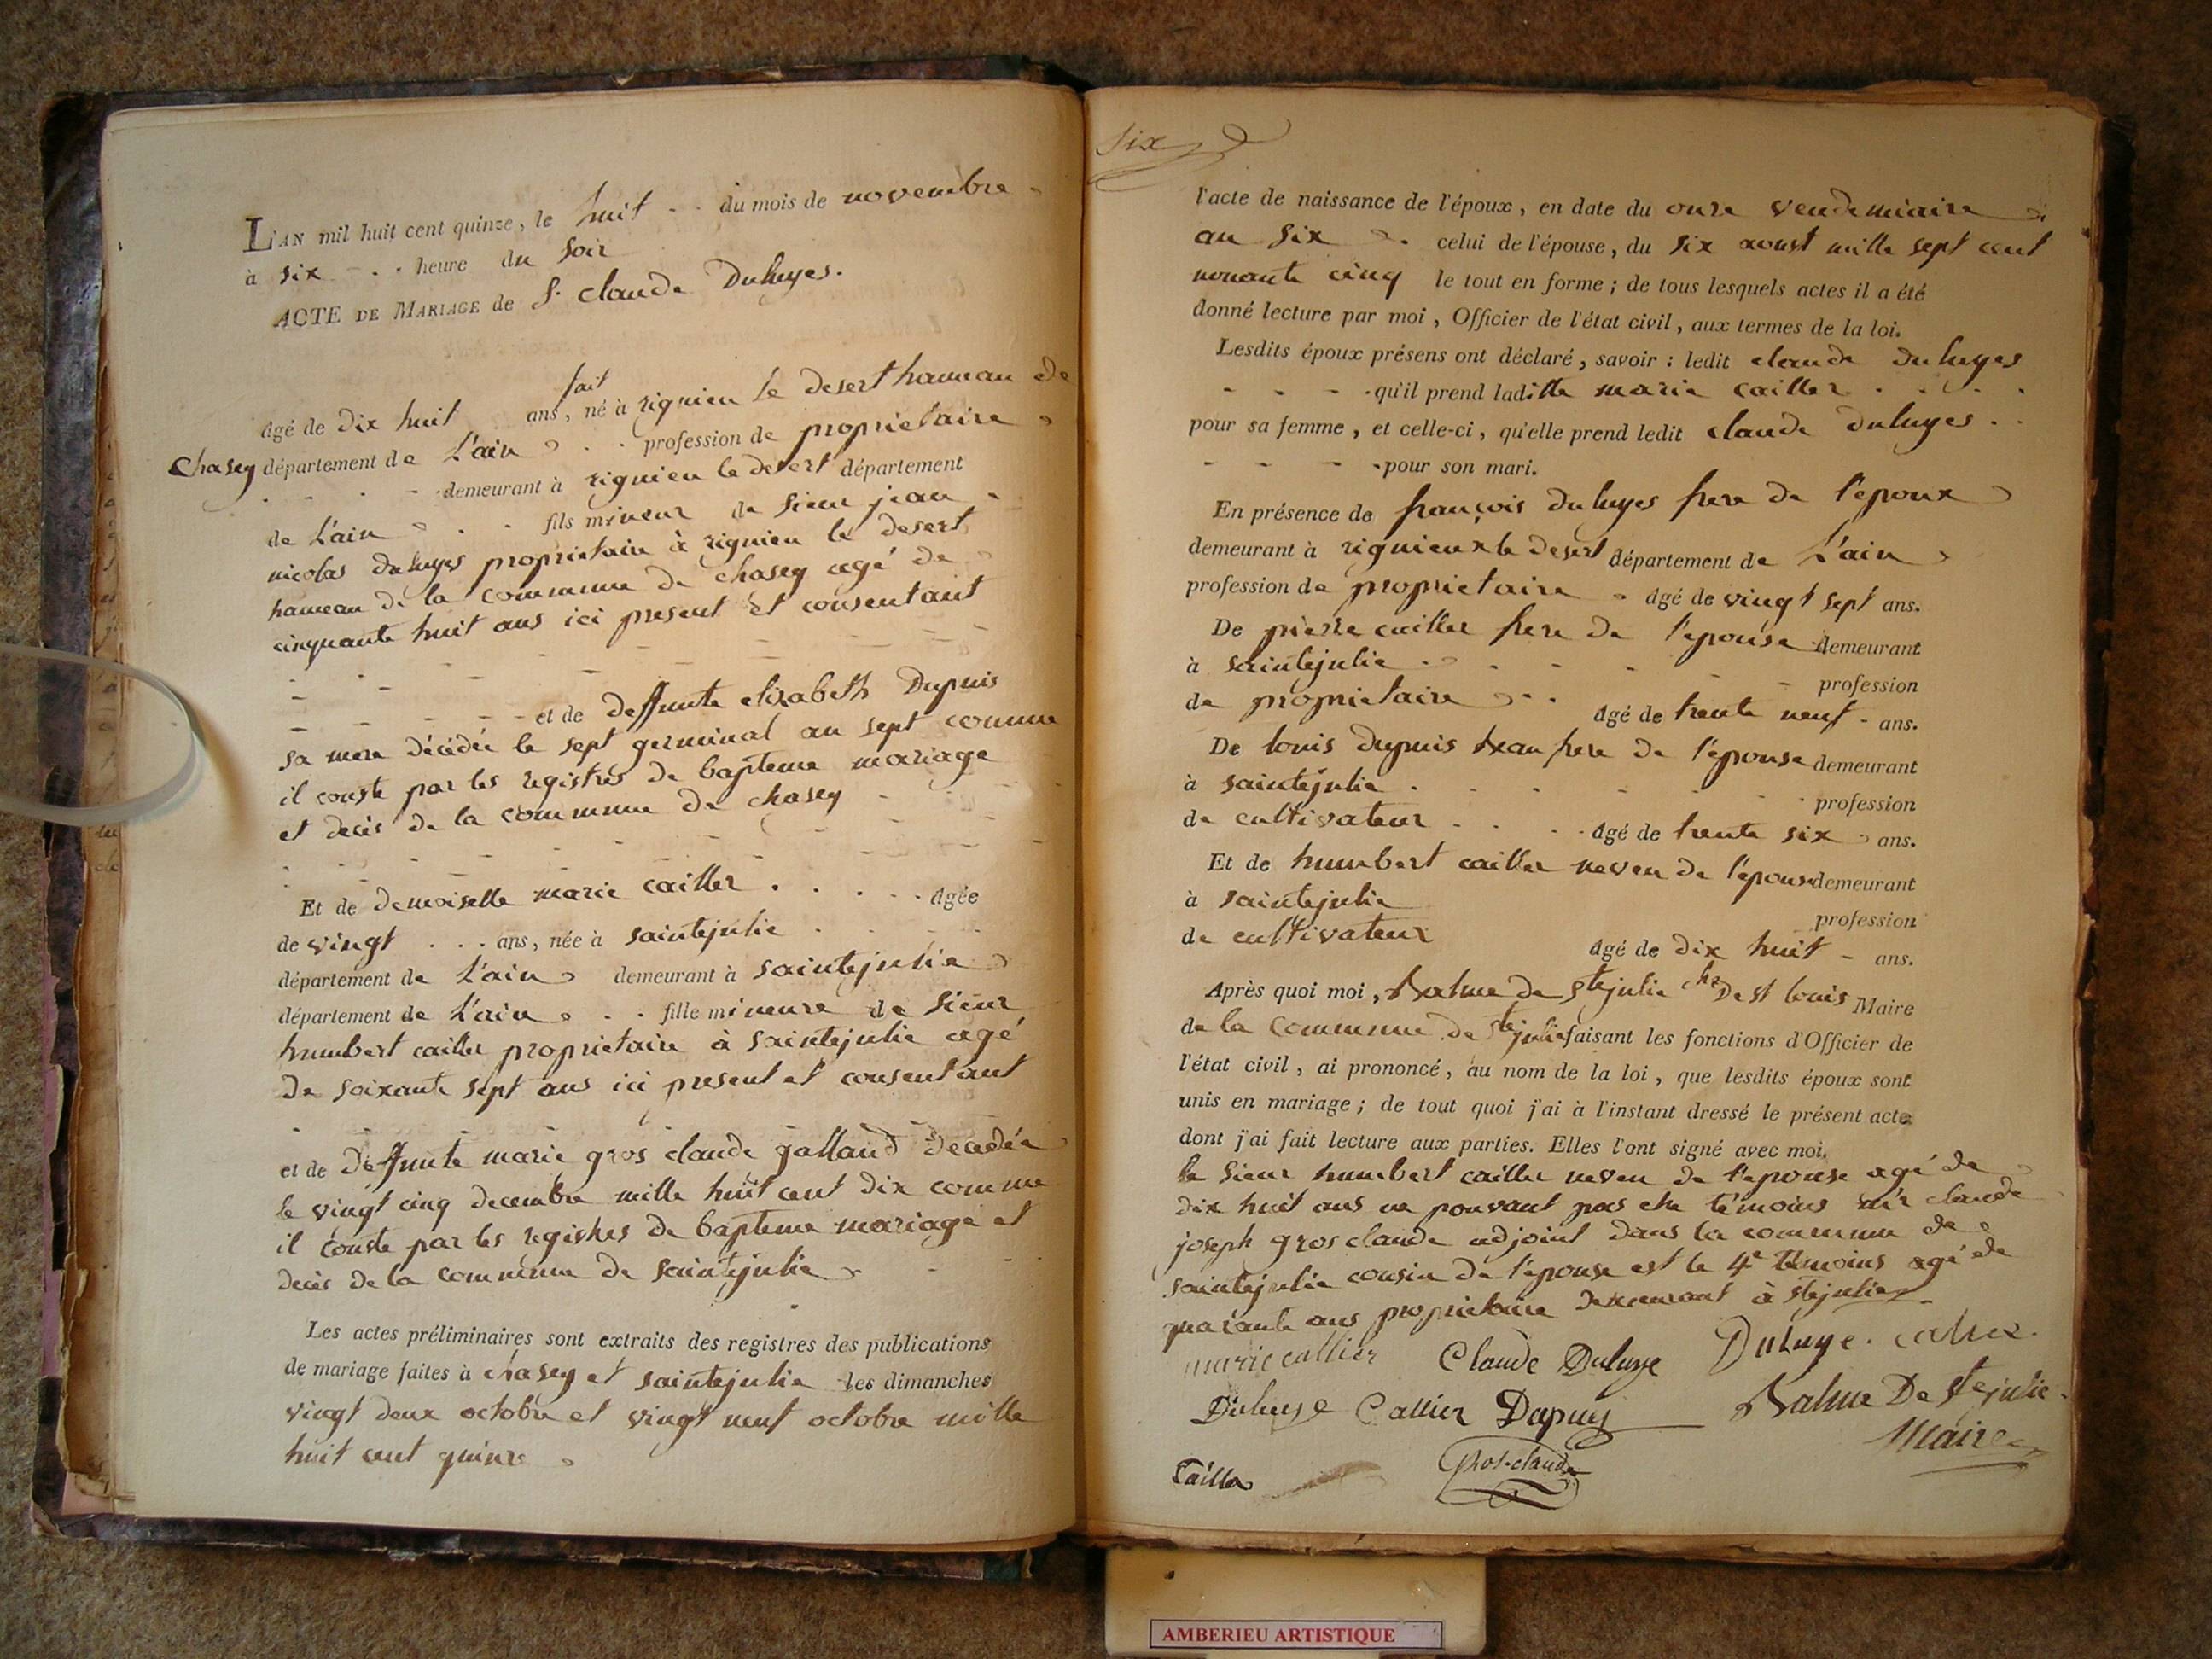 L'AN mil huit cent quinze, le huit du mois de novembre
à six heure du soir
ACTE DE MARIAGE de Sr claude Duluyes.
fait
âgé de dix huit ans, né à rignieu le desert hameau de
chasey département de L'ain profession de proprietaire
demeurant à rignieu le desert département
de L'ain fils mineur de sieur jean
nicolas duluyes proprietaire à rignieu le desert
hameau de la commune de chasey agé de
cinquante huit ans ici present et consentant
et de deffunte elizabeth Dupuis
sa mere décédée le sept germinal an sept comme
il conste par les registres de bapteme mariage
et decès de la commune de chasey
Et de demoiselle marie cailler âgée
de vingt ans, née à saintejulie
département de L'ain demeurant à saintejulie
département de L'ain fille mineure de sieur
humbert cailler proprietaire à saintejulie agé
de soixante sept ans ici present et consentant
et de deffunte marie gros claude galland decedée
le vingt cinq decembre mille huit cent dix comme
il conste par les registres de bapteme mariage et
decès de la commune de saintejulie
Les actes préliminaires sont extraits des registres des publications
de mariage faites à chasey et saintejulie les dimanches
vingt deux octobre et vingt neuf octobre mille
huit cent quinze
Six
l'acte de naissance de l'époux, en date du onze vendemiaire
an six celui de l'épouse, du six aoust mille sept cent
nonante cinq le tout en forme; de tous lesquels actes il a été
donné lecture par moi, Officier de l'état civil, aux termes de la loi.
Lesdits époux présens ont déclaré, savoir: ledit claude duluyes
qu'il prend laditte marie cailler
pour sa femme, et celle-ci, qu'elle prend ledit claude duluyes
pour son mari.
En présence de françois duluyes frere de l'epoux
demeurant à rignieux le desert département de L'ain
profession de proprietaire âgé de vingt sept ans.
De pierre cailler frere de l'epouse demeurant
à saintejulie profession
de proprietaire âgé de trente neuf ans.
De louis dupuis beau frere de l'épouse demeurant
à saintejulie profession
de cultivateur âgé de trente six ans.
Et de humbert cailler neveu de l'epouse demeurant
à saintejulie profession
de cultivateur âgé de dix huit ans.
Après quoi moi, Balme de stejulie chr De st louis Maire
de la commune de stejulie faisant les fonctions d'Officier de
l'état civil, ai prononcé, au nom de la loi, que lesdits époux sont
unis en mariage; de tout quoi j'ai à l'instant dressé le présent acte
dont j'ai fait lecture aux parties. Elles l'ont signé avec moi.
le sieur humbert cailler neveu de l'epouse agé de
dix huit ans ne pouvant pas etre témoins claude
joseph gros claude adjoint dans la commune de
saintejulie cousin de l'épouse est le 4e témoins agé de
quarante ans proprietaire demeurant à stejulie
marie callier Claude Duluye Duluye. Callier.
Duluye Callier Dupuy Balme De Stejulie
Maire
Cailler Gros-claude
AMBERIEU ARTISTIQUE